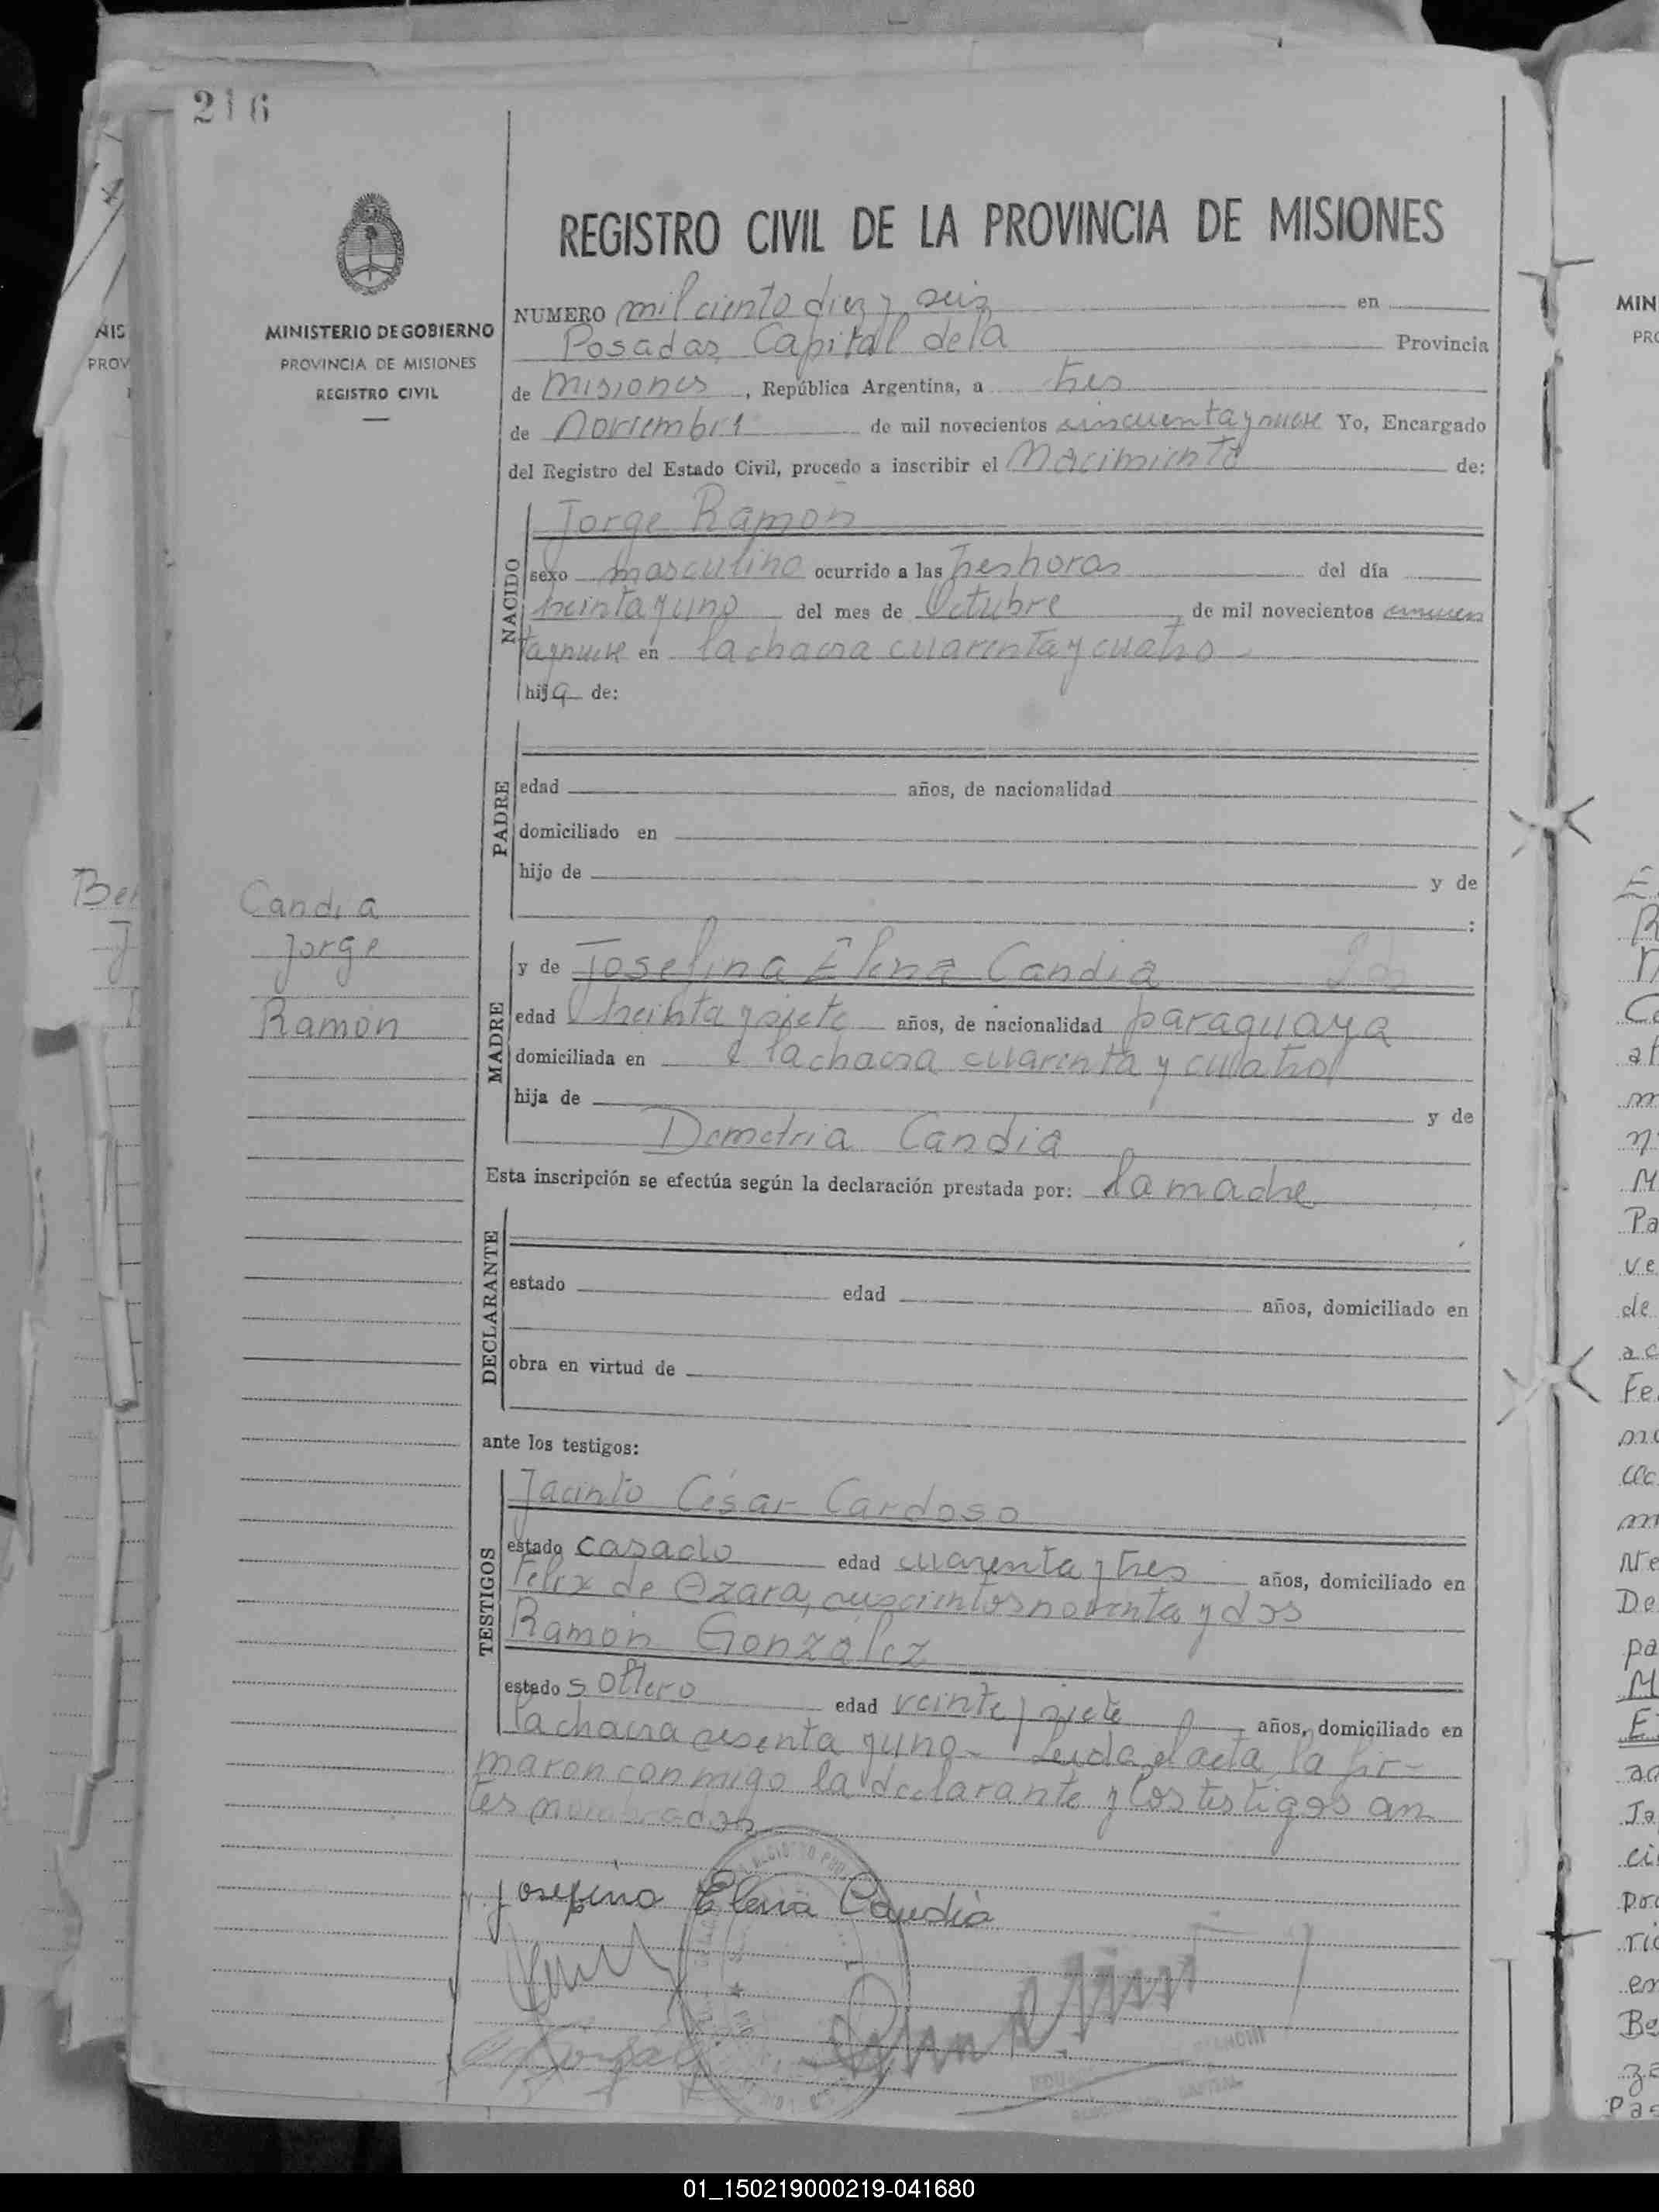 216
REGISTRO CIVIL DE LA PROVINCIA DE MISIONES
MINISTERIO DE GOBIERNO
PROVINCIA DE MISIONES
REGISTRO CIVIL
NUMERO mil ciento diez y seis en
Posadas Capital de la Provincia
de Misiones, República Argentina, a tres
de noviembre de mil novecientos cincuenta y nueve Yo, Encargado
del Registro del Estado Civil, procedo a inscribir el Nacimiento de:
NACIDO
Jorge Ramon
sexo masculino ocurrido a las tres horas del día
treinta y uno del mes de Octubre de mil novecientos cincuen
ta y nueve en la chacra cuarenta y cuatro -
hijo de:
PADRE
edad años, de nacionalidad
domiciliado en
hijo de y de
:
Candia
Jorge
Ramón
MADRE
y de Josefina Elena Candia
edad treinta y siete años, de nacionalidad paraguaya
domiciliada en la chacra cuarenta y cuatro
hija de y de
Demetria Candia
Esta inscripción se efectúa según la declaración prestada por: la madre
DECLARANTE
estado edad años, domiciliado en
obra en virtud de
ante los testigos:
TESTIGOS
Jacinto César Cardoso
estado casado edad cuarenta y tres años, domiciliado en
Felix de Azara, noventa y dos
Ramón González
estado soltero edad veinte y siete años, domiciliado en
la chacra sesenta y uno - Leida el acta, la fir-
maron conmigo la declarante y los testigos an
tes nombrados
Josefina Elena Candia
01_150219000219-041680